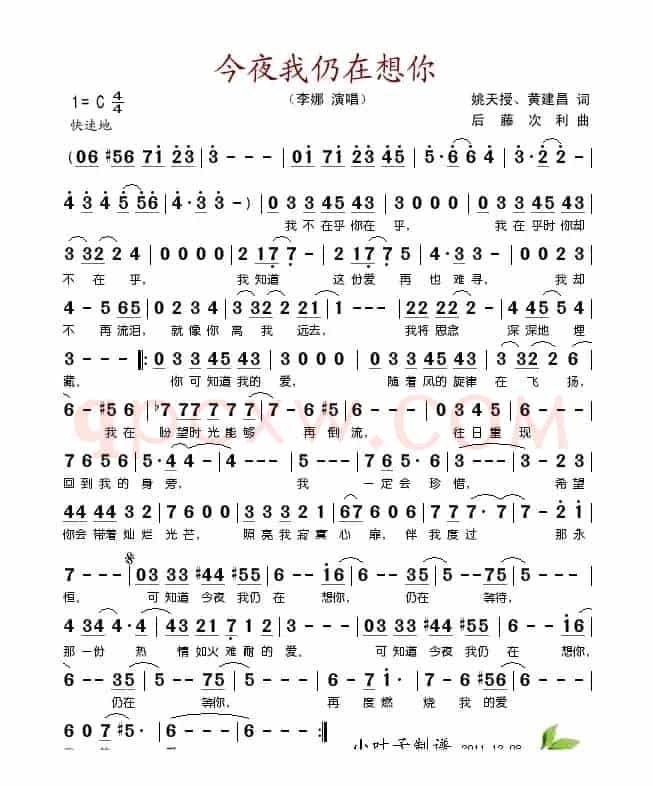 今夜我仍在想你
1= C 4/4
（李娜 演唱）
姚天授、黄建昌 词
快速地
后藤次利 曲
( 06 #56 71 23 | 3 - - - | 01 71 23 45 | 5 · 6 6 4 | 3 · 2 2 - |
4 3 4 5 56 | 4 · 3 3 - ) | 0 3 3 45 43 | 3 0 0 0 | 0 3 3 45 43 |
我 不 在乎 你在 乎， 我 在乎时 你却
3 32 2 4 | 0 0 0 0 | 0 2 17 7 - | 2 17 7 - | 4 · 3 3 - | 0 0 2 3 |
不 在 乎， 我 知道 这 份爱 再 也 难 寻， 我 却
4 - 5 65 | 0 2 3 4 | 3 32 2 21 | 1 - - - | 22 22 2 - | 4 55 5 4 |
不 再 流泪， 就 像 你 离 我 远去， 我将 思念 深 深地 埋
3 - - - |: 0 3 3 45 43 | 0 3 3 45 43 | 3 32 2 6 |
藏， 你 可 知道 我的 爱， 随 着 风的 旋律 在 飞 扬，
6 - #5 6 | b7 77 77 7 | 7 - #5 6 | 6 - - - | 0 3 4 5 | 6 - 1 2 |
我 在 盼 望时 光能 够 再 倒 流， 往 日 重 现
7 6 5 6 | 5 · 4 4 - | 4 - - - | 7 - #5 6 | 3 - - - | 3 - 2 3 |
回 到 我 的 身 旁， 我 一 定 会 珍 惜， 希 望
44 44 3 2 | 7 6 0 0 | 0 6 7 1 3 2 | 67 6 0 6 | 7 7 7 · | 7 - 2 1 |
你会 带着 灿 烂 光 芒， 照 亮 我 寂 寞 心 扉， 伴 我 度 过 那 永
7 - - - | 03 33 #44 #55 | 6 - - 16 | 6 - - 35 | 5 - - - | 7 1 5 5 |
恒， 可 知道 今夜 我仍 在 想你， 仍在 等待，
34 4 · 4 | #43 21 7 1 2 | 3 - - - | 03 33 #44 #55 | 6 - - 16 |
那一份 热 情如 火 难 耐 的 爱， 可 知道 今夜 我仍 在 想你，
6 - - 35 | 5 - - - | 6 - 7 1 · | 6 - 7 - | 6 - #5 - |
仍在 等你， 再 度 燃 烧 我 的 爱
6 0 7 #5 · | 6 - - - | 6 - - - :|
小叶子制谱 2011.12.08
qpcxw.COM